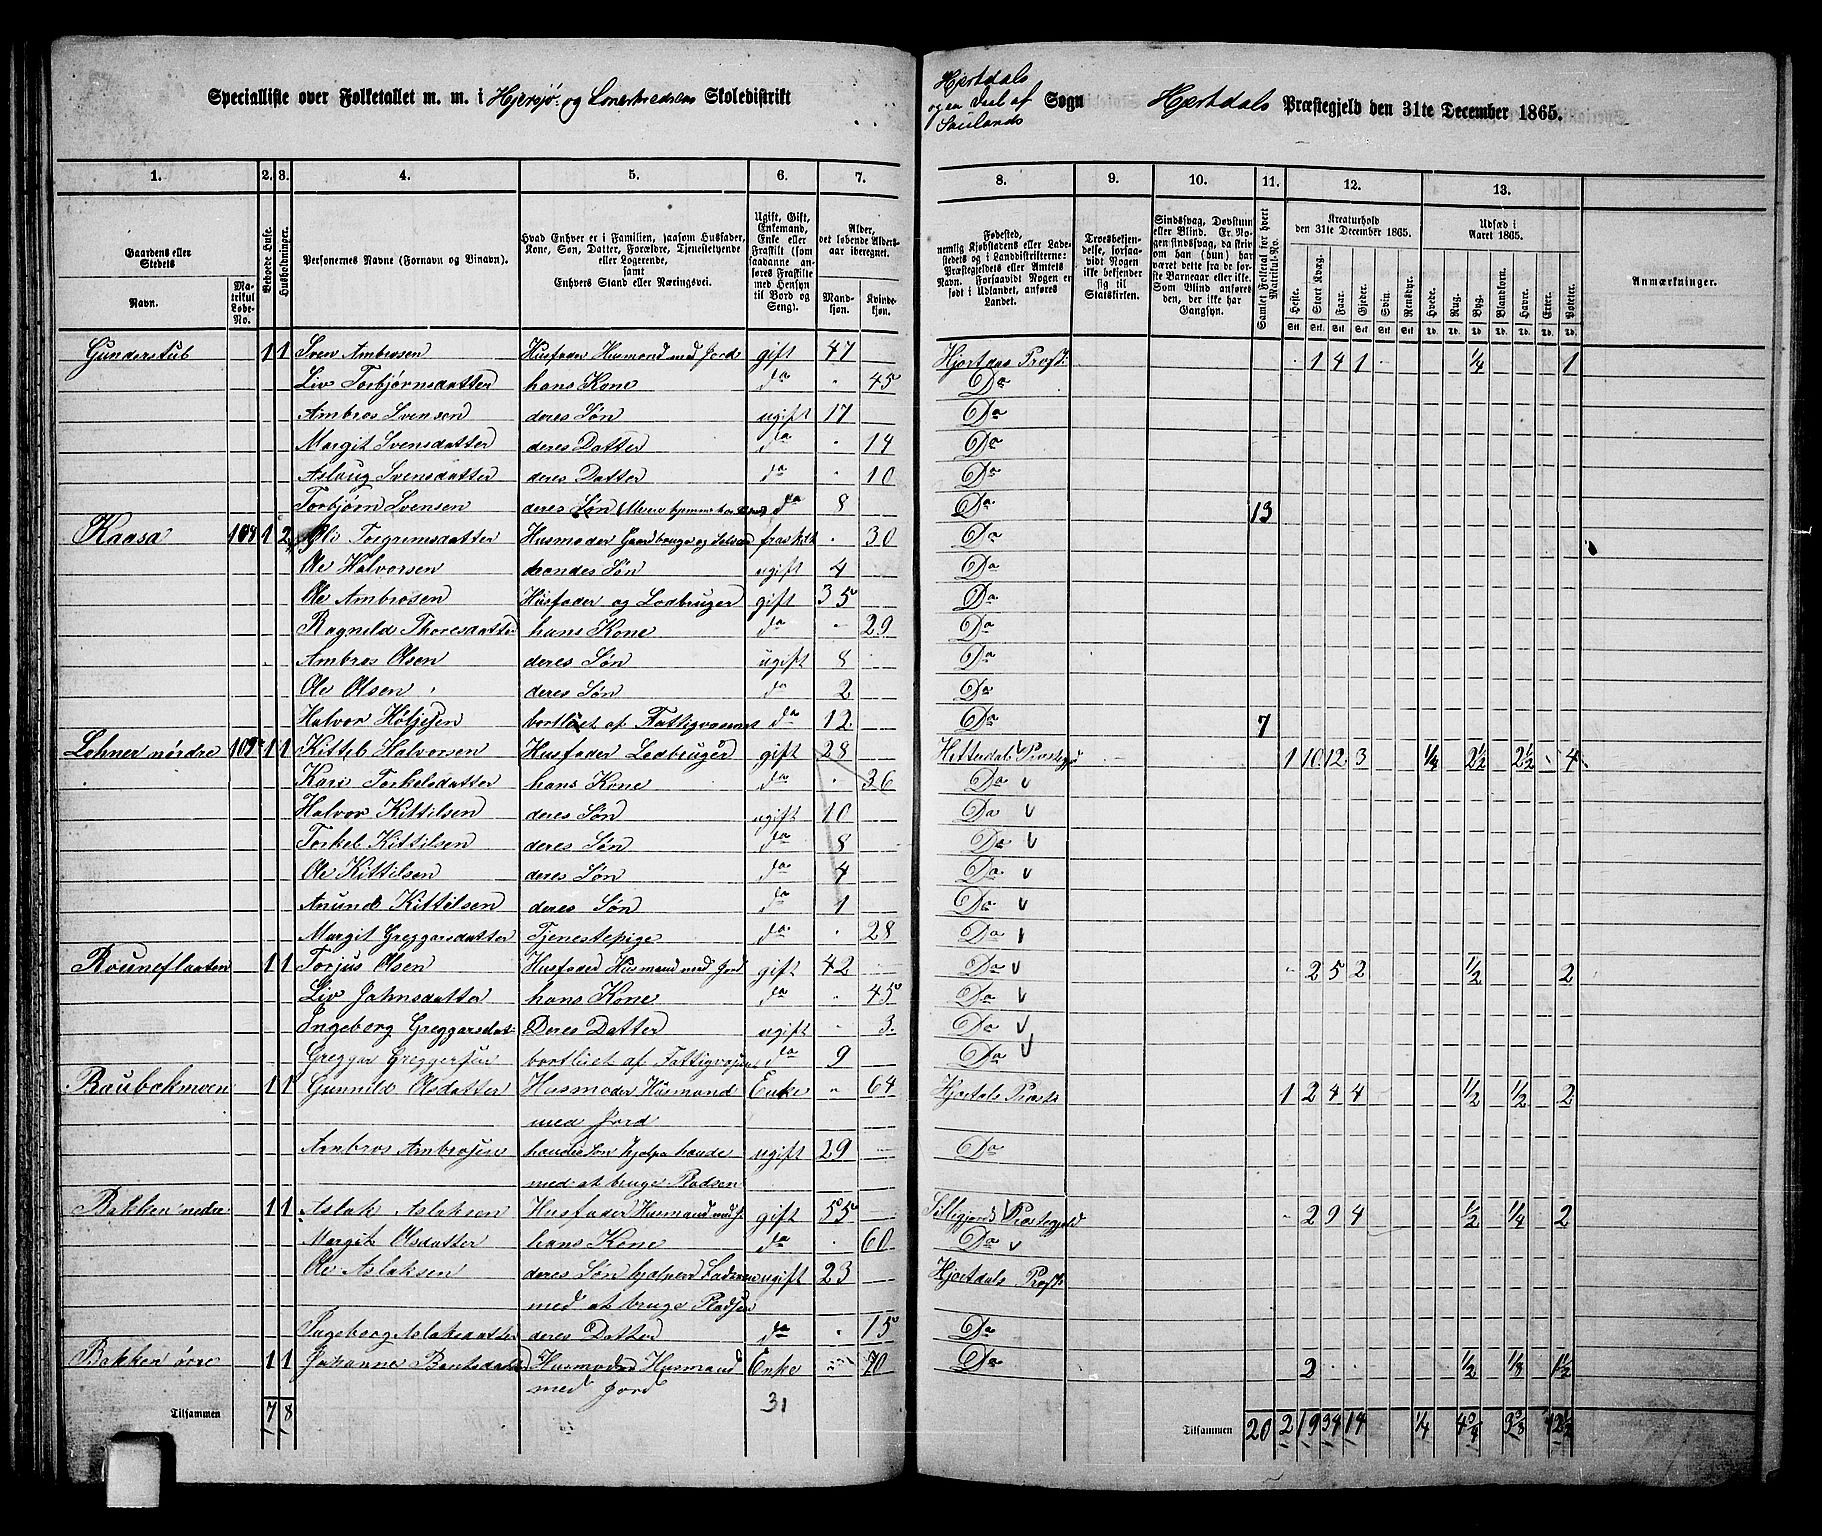 Specialliste over Folketallet m. m. i Hjersjø og Skoledistrikt
Hjertdals og en Deel af Saulands Sogn Hjertdals Præstegjeld den 31te December 1865.
1. 2. 3. 4. 5. 6. 7. 8. 9. 10. 11. 12. 13.
Gaardens eller Stedets Navn. Matrikul Løbe-No. Beboede Huse. Husholdninger. Personernes Navne (Fornavn og Binavn). Hvad Enhver er i Familien, saasom Husfader, Kone, Søn, Datter, Forældre, Tjenestetyende eller Logerende, samt Enhvers Stand eller Næringsvei. Ugift, Gift, Enkemand, Enke eller Fraskilt (saadanne anføres som Fraskilte med Hensyn til Bord og Seng). Alder, det løbende Aldersaar iberegnet. Mandkjøn. Kvindekjøn.
Fødested, nemlig Kjøbstadens eller Ladestedets og i Landdistrikterne: Præstegjeldets eller Amtets Navn. Forsaavidt Nogen er født i Udlandet, anføres Landet. Troesbekjendelse, forsaavidt Nogen ikke bekjender sig til Statskirken. Sindssvag, Døvstum eller Blind. Er Nogen sindssvag, da skrives om han (hun) har været dette fra de første Barneaar eller ikke. Som Blind anføres den, der ikke har Gangsyn. Samlet Folketal for hvert Matrikul-No. Kreaturhold den 31te December 1865. Heste. Stort Kvæg. Faar. Gjeder. Svin. Rensdyr. Udsæd i Aaret 1865. Hvede. Rug. Byg. Blandkorn. Havre. Erter. Poteter. Anmærkninger.
Gunderstub 1 1 Sven Ambrosen Husfader Husmand med Jord gift 47 Hjertdals Præstg. 1 4 1 1/4 1
Liv Torbjørnsdatter hans Kone do 45 Do
Ambros Svensen deres Søn ugift 17 Do
Margit Svensdatter deres Datter do 14 Do
Aslaug Svensdatter deres Datter do 10 Do
Torbjørn Svensen deres Søn do 8 Do 13
Kaasa 108 1 2 Torgrimsdatter Husmoder Gaardbruger og fraskilt 30 Do
Ole Halvorsen hendes Søn ugift 4 Do
Ole Ambrosen Husfader og Lodbruger gift 35 Do
Ragnild Thoresdatter hans Kone do 29 Do
Ambros Olsen deres Søn ugift 8 Do
Ole Olsen deres Søn do 2 Do
Halvor Høljesen bortliset af Fattigvæsnet do 12 Do 7
Lehner nordre 109 1 1 Kittel Halvorsen Husfader Lodbruger gift 28 Hitterdals Præstegj 1 10 12 3 1/4 2 1/2 2 1/2 4
Kari Torkelsdatter hans Kone do 36 Do
Halvor Kittilsen deres Søn ugift 10 Do
Torkel Kittilsen deres Søn do 8 Do
Ole Kittilsen deres Søn do 4 Do
Anund Kittilsen deres Søn do 1 Do
Margit Greggarsdatter Tjenestepige do 28 Do
Rouneflaaten 1 1 Torjus Olsen Husfader Husmand med Jord gift 42 Do 2 5 2 1/2 2
Liv Jahnsdatter hans Kone do 45 Do
Ingeborg Greggarsdat. Deres Datter ugift 3 Do
Greggar Greggersen bortliset af Fattigvæsnet do 9 Do
Raubekmoen 1 1 Gunnild Olsdatter Husmoder Husmand Enke 64 Hjertdals Præstg 1 2 4 4 1/2 1/2 2
med Jord
Ambros Ambrosen hendes Søn hjelper hende ugift 29 Do
med at bruge Pladsen
Bakken nedre 1 1 Aslak Aslaksen Husfader Husmand med J. gift 55 Sillegjords Præstegjeld 2 9 4 1/2 1/4 2
Margit Olsdatter hans Kone do 60 Do
Ole Aslaksen deres Søn hjelper Faderen ugift 23 Hjertdals Præstg
med at bruge Pladsen
Ingeborg Aslaksdatter deres Datter do 15 Do
Bakken øvre 1 1 Johanne Bentsdatter Husmoder Husmand Enke 70 Do 2 1/2 1/8 1 1/2
med Jord
Tilsammen 7 8 31 Tilsammen 20 2 19 34 14 1/4 4 3/4 3 5/8 12 1/2